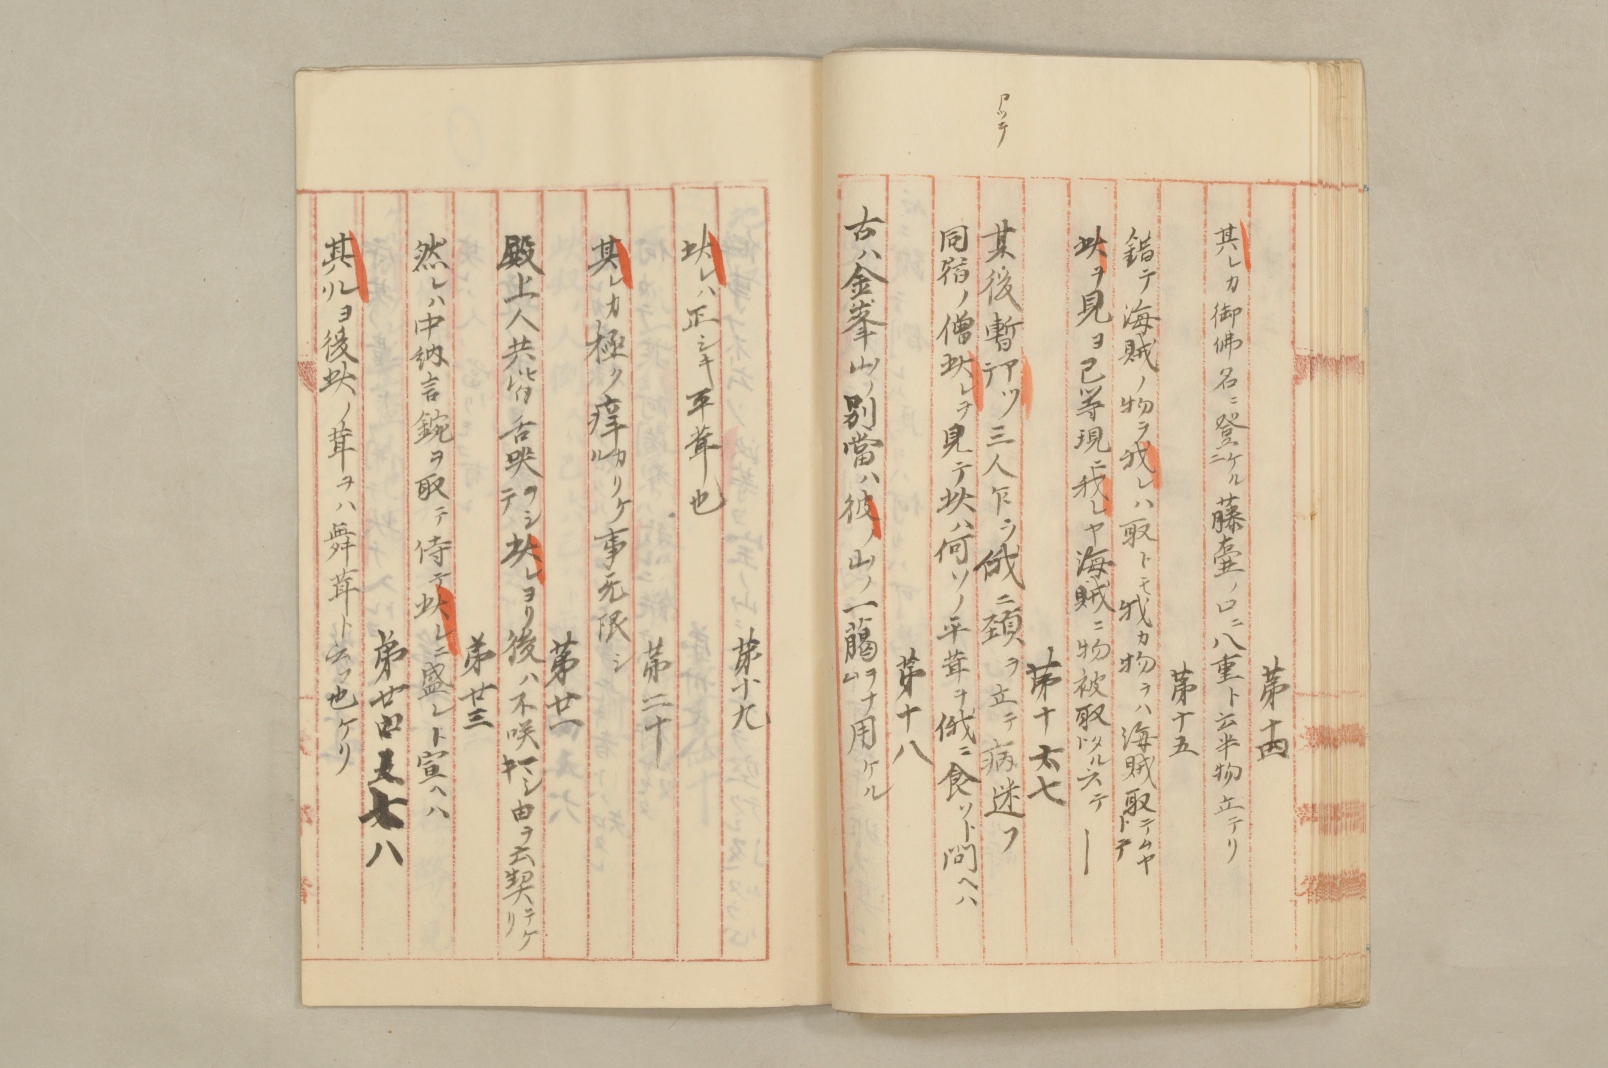 アッテ
第十四
其レカ御佛名ニ登ニケル藤壷ノ口ニ八重ト云半物立テリ
第十五
錯テ海賊ノ物ヲ我レハ取トモ我カ物ヲハ海賊取テムヤトテ
此ヲ見ヨ己等現ニ我レヤ海賊ニ物被取タルト云テ
第十七
某後暫アツテ三人乍ラ俄ニ頚ヲ立テ病迷フ
同宿ノ僧此レヲ見テ此ハ何ソノ平茸ヲ俄ニ食ツト問ヘハ
第十八
古ハ金峯山ノ別當ハ彼ノ山ノ一﨟ヲナ用ケル
第十九
此レハ正シキ平茸也
第二十
其レカ極ク痒カリケル事无限シ
第廿一
殿上人共皆舌哭ヲシテ此レヨリ後ハ不咲マシキ由ヲ云契テケリ
第廿三
然レハ中納言鋺ヲ取テ侍テ此レニ盛レト宣ヘハ
第廿八
其リレヨ後此ノ茸ヲハ舞茸ト云フ也ケリ